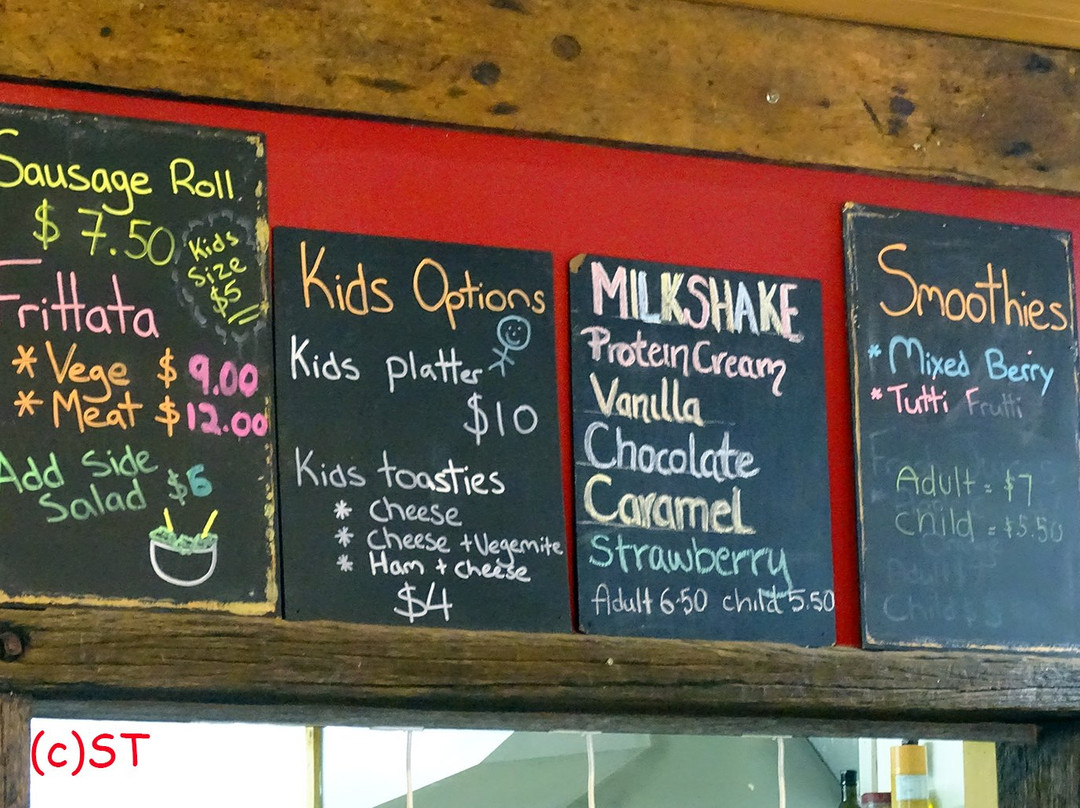 Sausage Roll
$7.50
Kids
Size
$5
Frittata
* Vege $9.00
* Meat $12.00
Add Side
Salad $6
Kids Options
Kids platter
$10
Kids toasties
* Cheese
* Cheese + Vegemite
* Ham + cheese
$4
MILKSHAKE
Protein Cream
Vanilla
Chocolate
Caramel
Strawberry
Adult 6.50 child 5.50
Smoothies
* Mixed Berry
* Tutti Frutti
Adult = $7
Child = $5.50
(c)ST